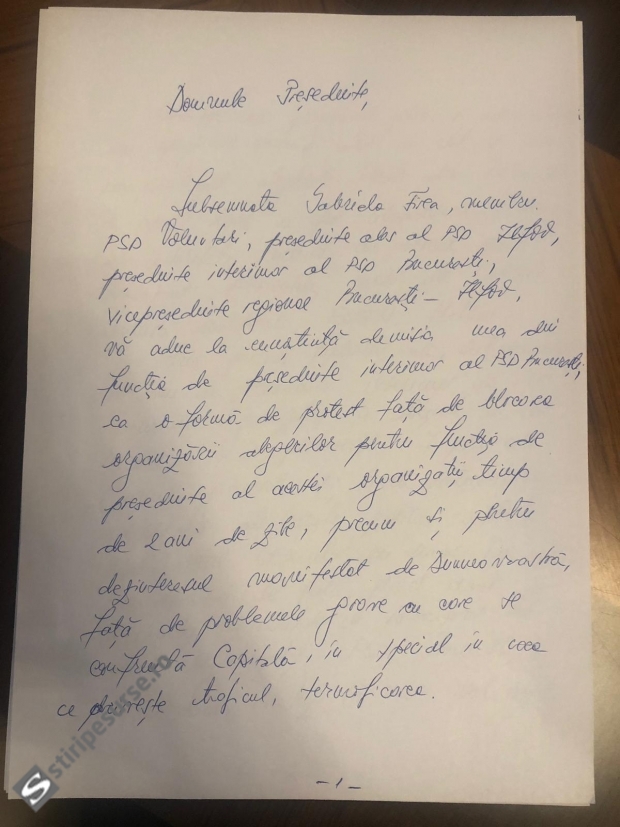 Domnule Președinte,
Subsemnata Gabriela Firea, membru
PSD Voluntari, președinte ales al PSD Ilfov,
președinte interimar al PSD București,
vicepreședinte regional București - Ilfov,
vă aduc la cunoștință demisia mea din
funcția de președinte interimar al PSD București,
ca o formă de protest față de blocarea
organizării alegerilor pentru funcția de
președinte al acestei organizații timp
de 2 ani de zile, precum și pentru
dezinteresul manifestat de Dumneavoastră,
față de problemele grave cu care se
confruntă Capitala, în special în ceea
ce privește traficul, termoficarea.
- 1 -
S stiripesurse.ro